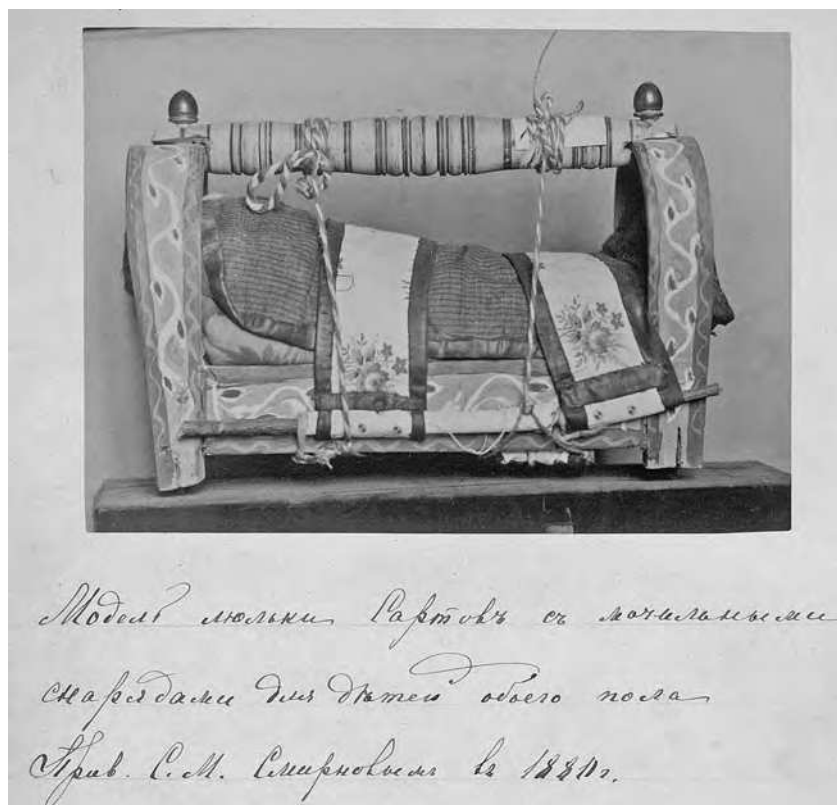 Модель люльки Сартовъ съ мочильными
снарядами для дѣтей обоего пола
Прив. С. М. Смирновымъ въ 1880 г.